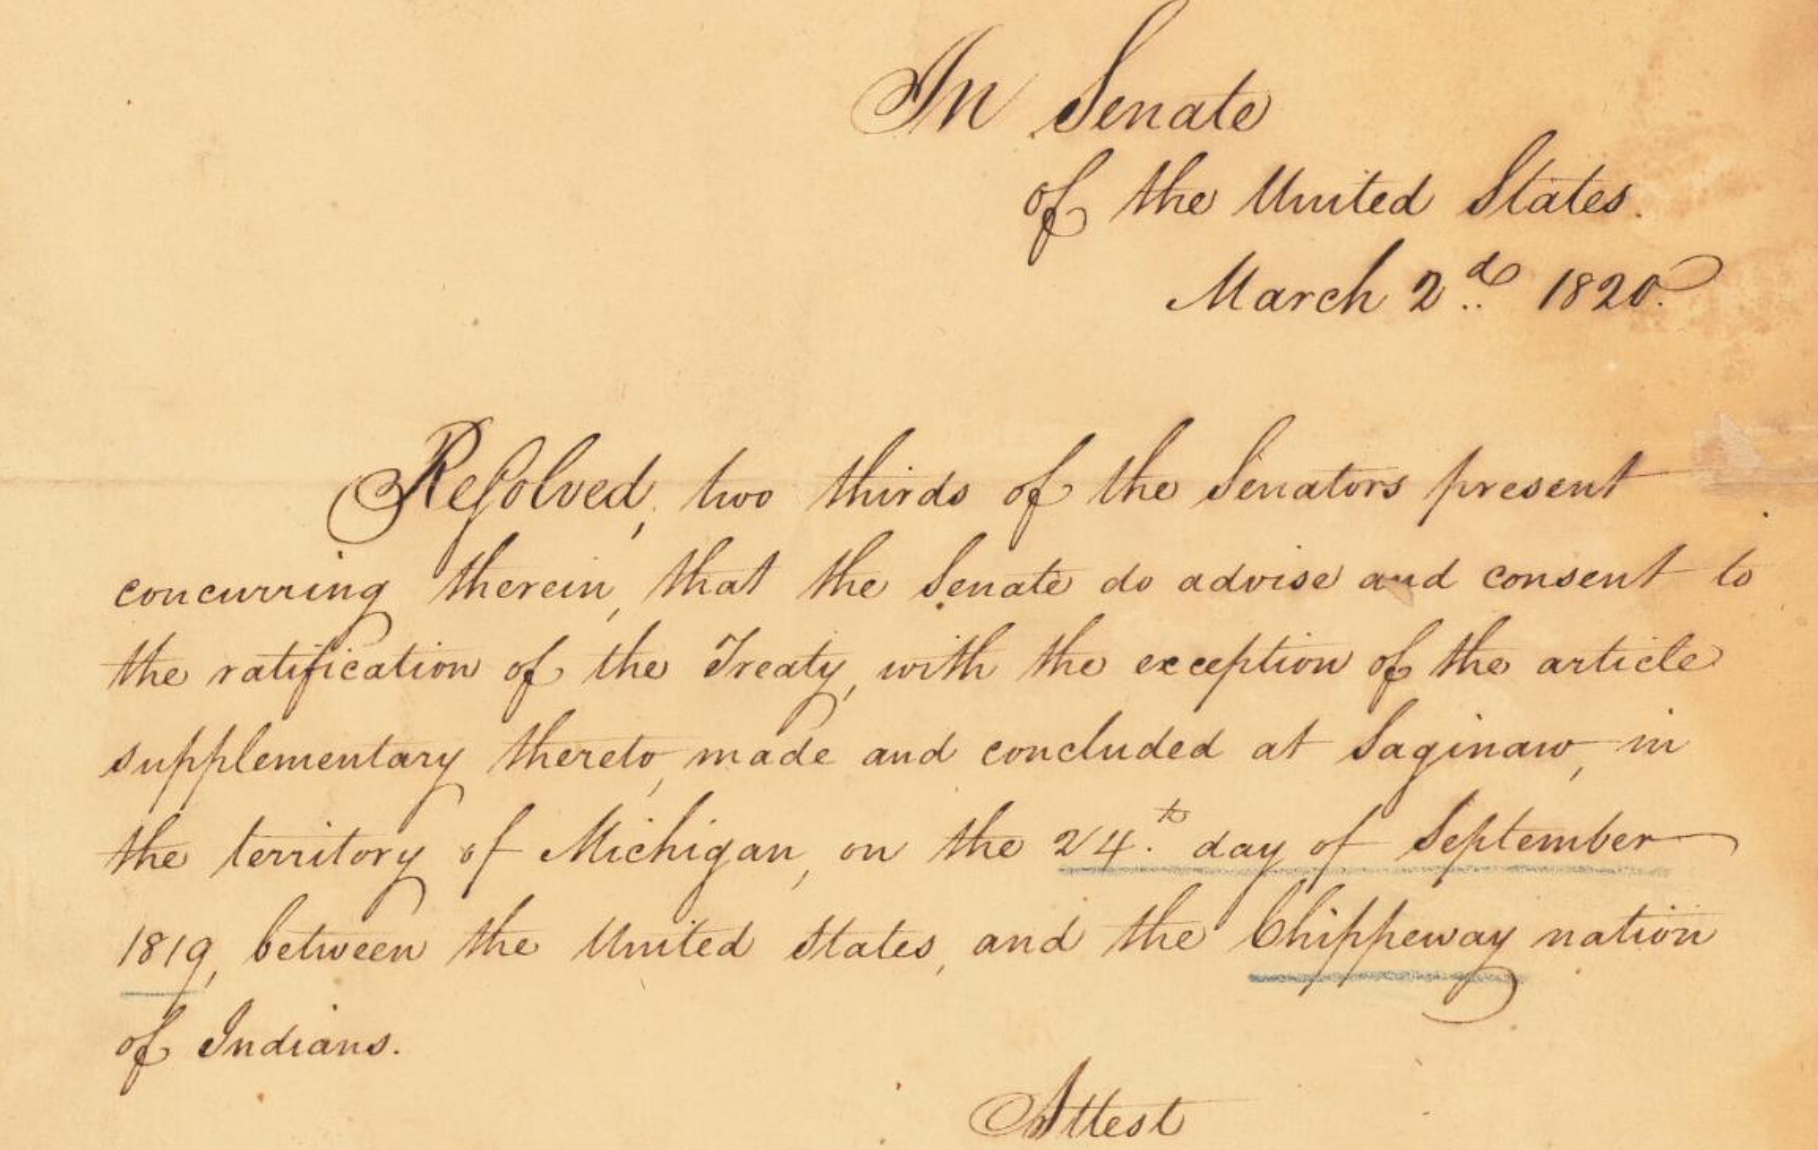 In Senate
of the United States.
March 2d. 1820.
Reſolved, two thirds of the Senators present
concurring therein, that the Senate do advise and consent to
the ratification of the Treaty, with the exception of the article
supplementary thereto, made and concluded at Saginaw, in
the territory of Michigan, on the 24.th day of September
1819, between the United States, and the Chippeway nation
of Indians.
Attest